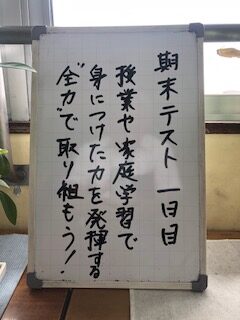 期末テスト一日目
授業や家庭学習で
身につけた力を発揮する
“全力”で取り組もう！